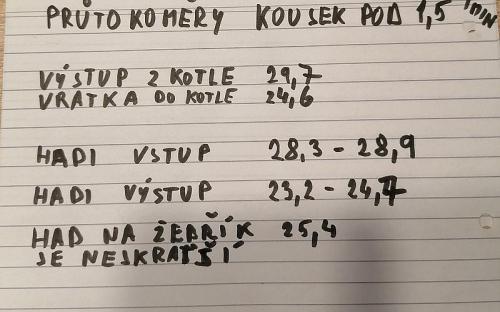 PRŮTOKOMĚRY KOUSEK POD 1,5 lmin
VÝSTUP Z KOTLE 29,7
VRATKA DO KOTLE 24,6
HADI VSTUP 28,3 - 28,9
HADI VÝSTUP 23,2 - 24,7
HAD NA ŽEBŘÍK 25,4
SE NESKRATŠÍ